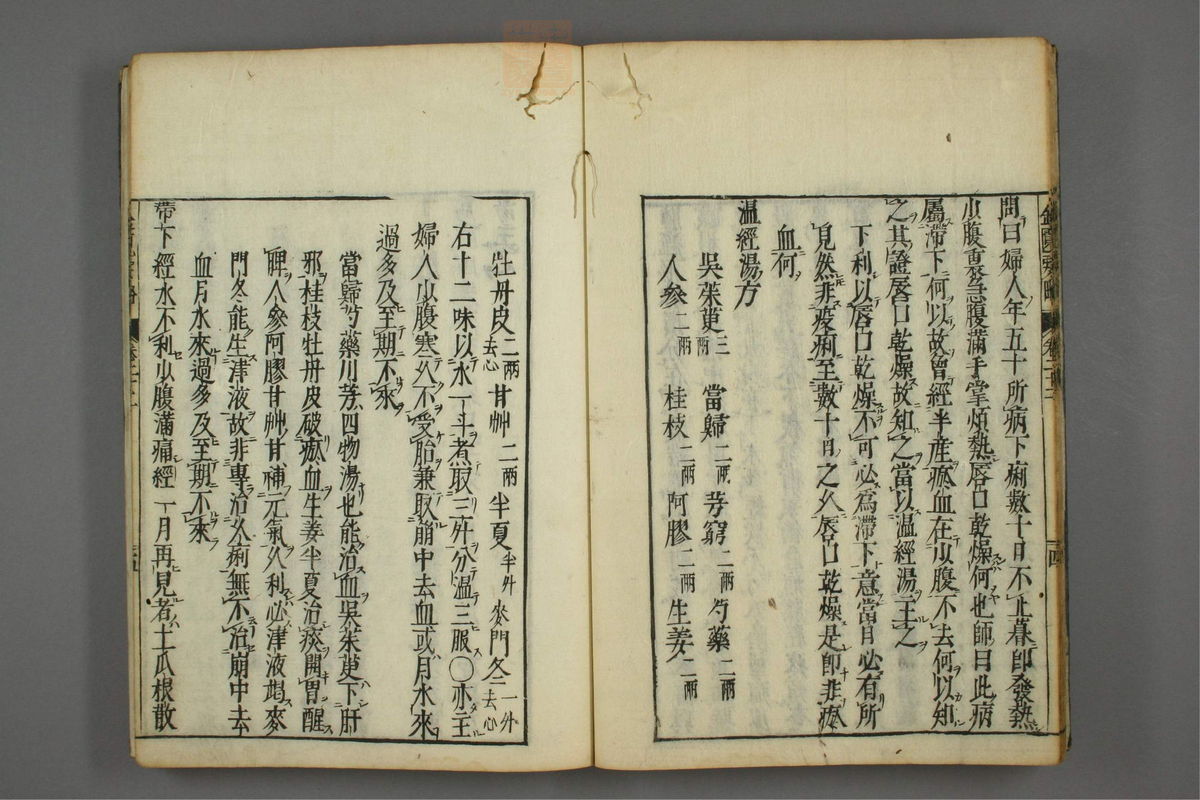 問曰婦人年五十所病下痢數十日不止暮即發熱
少腹裏急腹滿手掌煩熱唇口乾燥何也師曰此病
屬滯下何以故曾經半產瘀血在少腹不去何以知
之其證唇口乾燥故知之當以温經湯主之
下利以唇口乾燥不可必為滯下意當日必有所
見然非疫痢至數十日之久唇口乾燥是即非瘀
血何
温經湯方
吳茱萸三兩 當歸二兩 芎窮二兩 芍藥二兩
人參二兩 桂枝二兩 阿膠二兩 生姜二兩
牡丹皮二兩去心 甘艸二兩 半夏半升 麥門冬一升去心
右十二味以水一斗煮取三升分温三服〇亦主
婦人少腹寒久不受胎兼取崩中去血或月水來
過多及至期不來
當歸芍藥川芎四物湯也能治血吳茱萸下肝
邪桂枝牡丹皮破瘀血生姜半夏治痰開胃醒
脾人參阿膠甘艸甘補元氣久利必津液 麥
門冬能生津液故非專治久痢無不治崩中去
血月水來過多及至期不來
帶下經水不利少腹滿痛經一月再見者土瓜根散